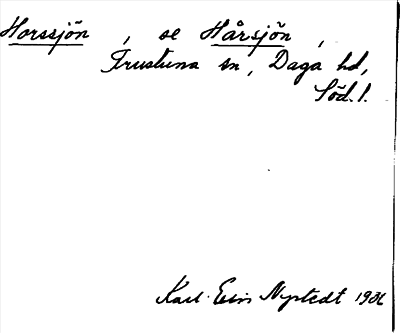 Horssjön, se Hårsjön,
Frustuna sn, Daga hd,
Söd. l.
Karl-Erir Nystedt 193